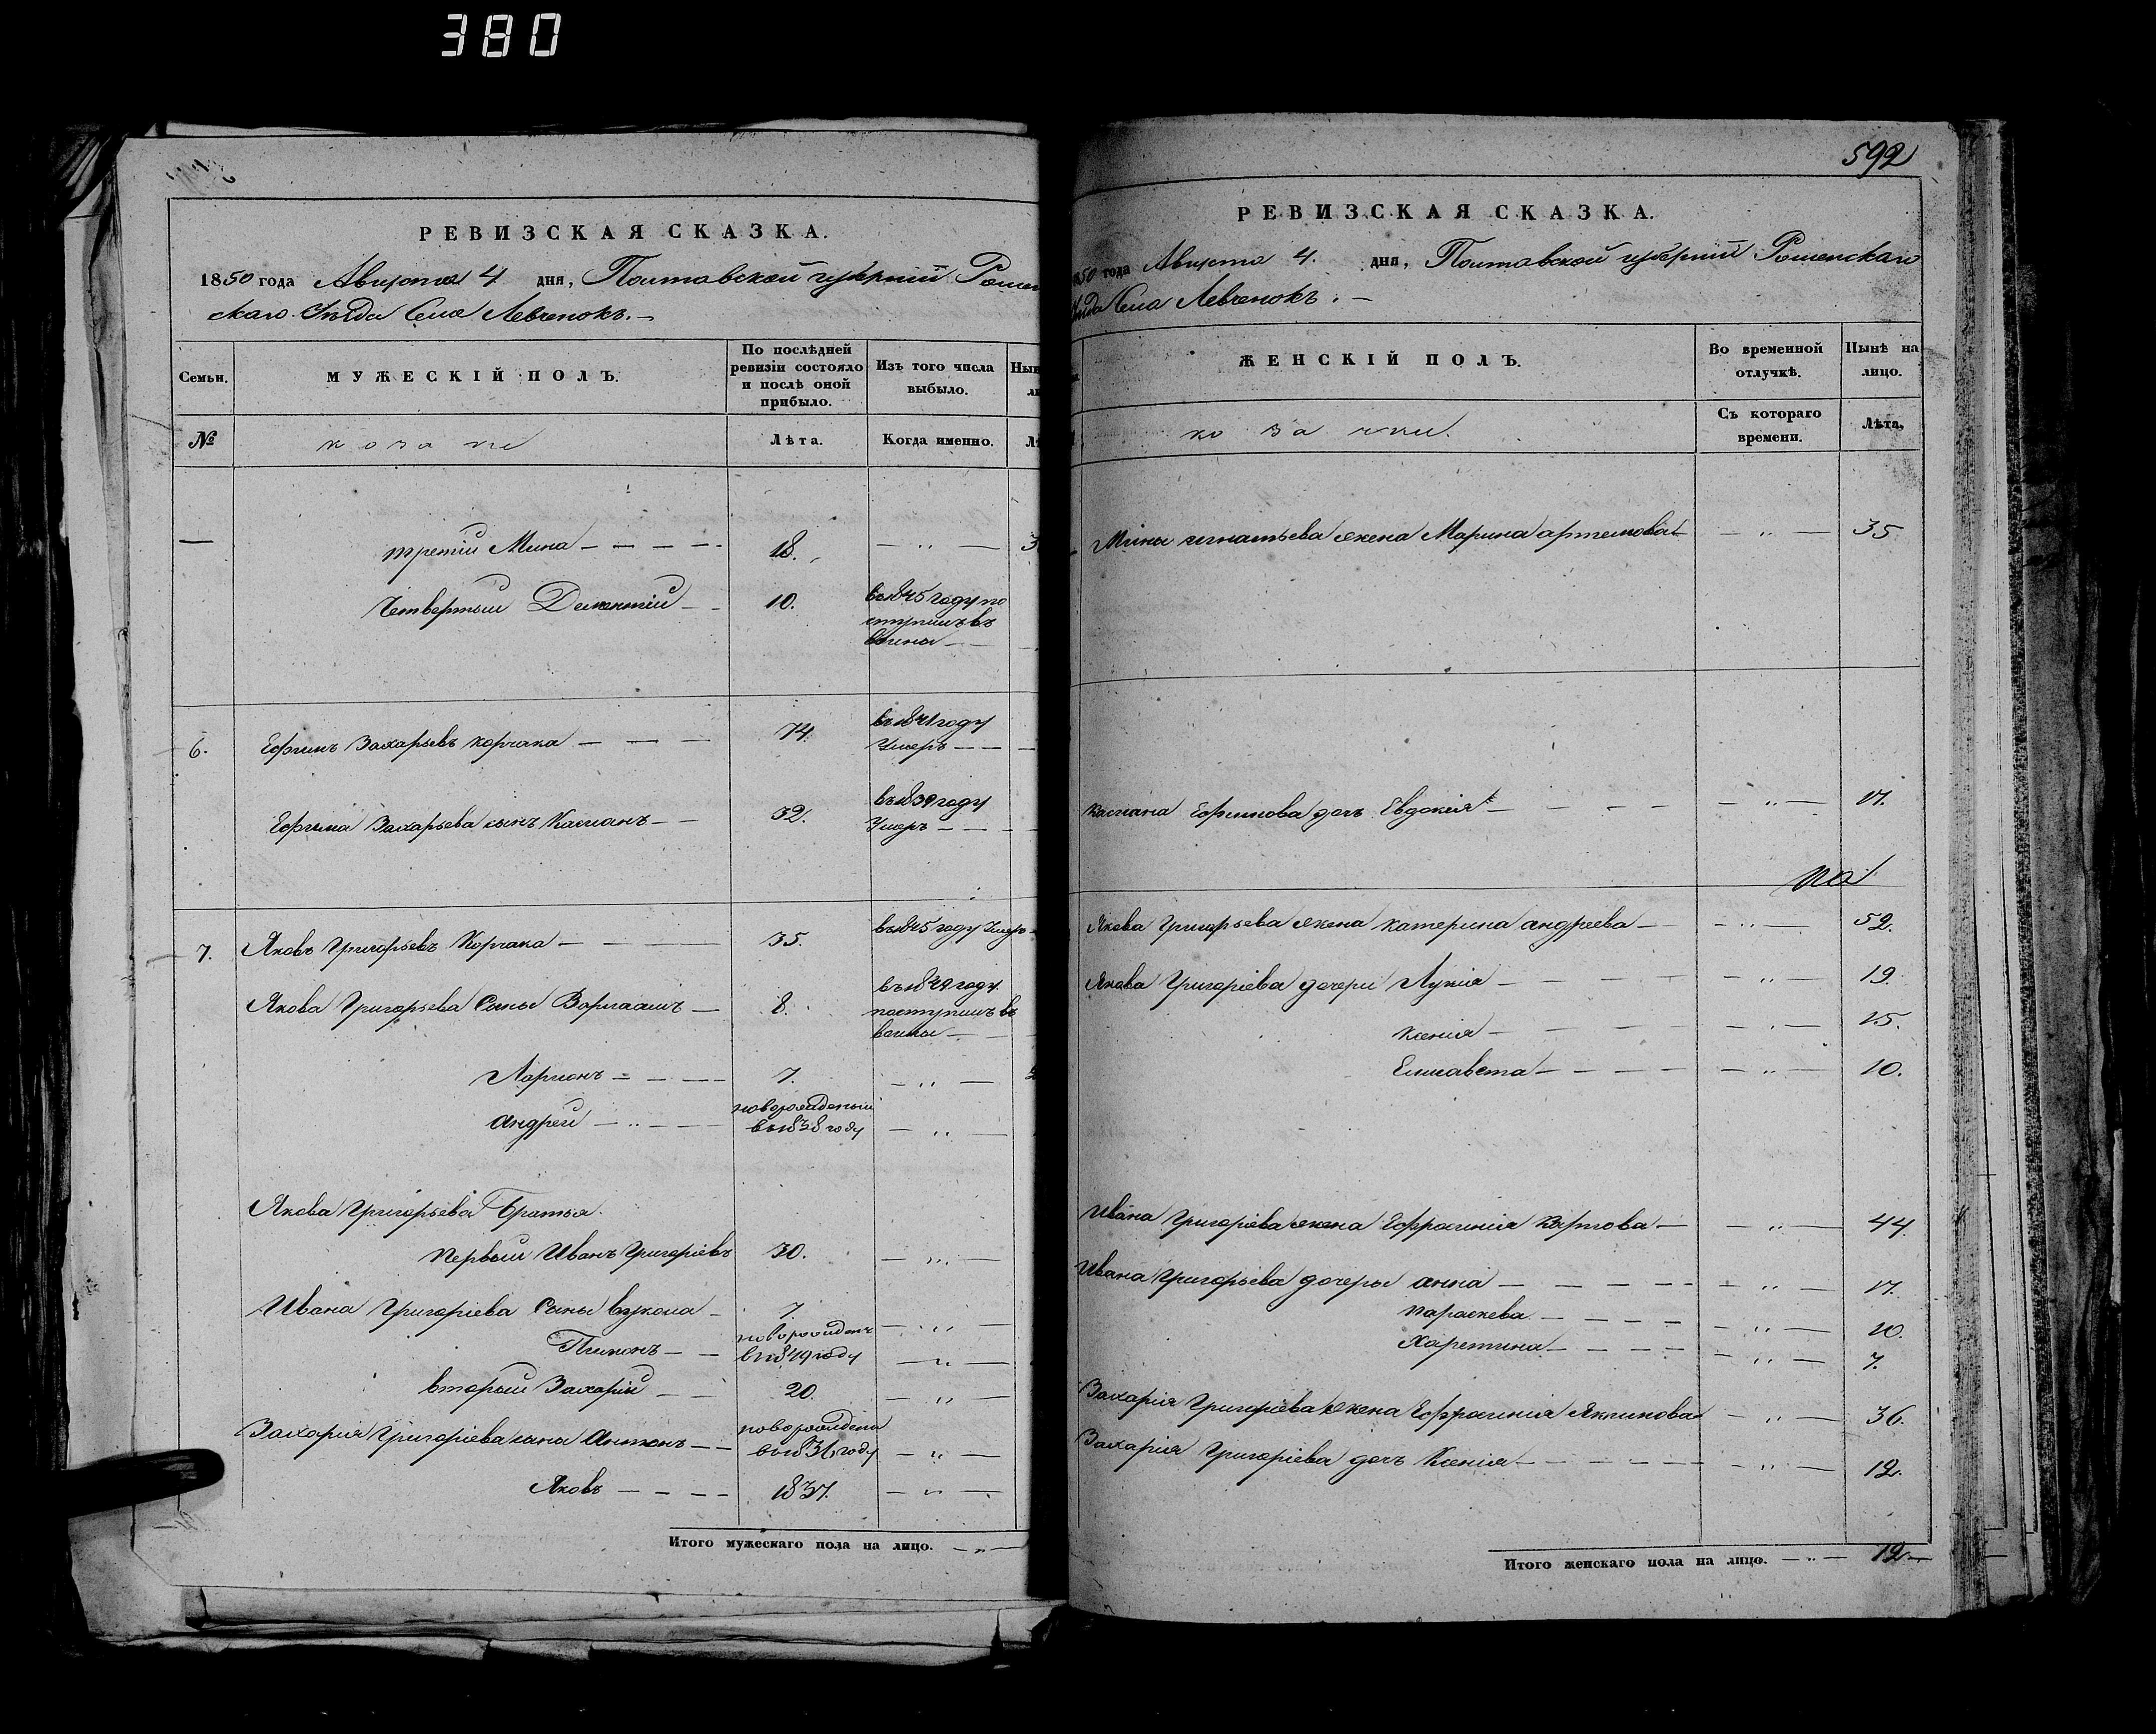 380
РЕВИЗСКАЯ СКАЗКА.
1850 года Августа 4 дня, Полтавской губернии Ромен
скаго Уѣзда Села Левченокъ. —
Семьи.
МУЖЕСКІЙ ПОЛЪ.
По послѣдней
ревизіи состояло
и послѣ оной
прибыло.
Изъ того числа
выбыло.
№
козаки
Лѣта.
Когда именно.
— третій Мина — — — — 18. — „ — 3
Четвертый Дементій — — 10. въ 1845 году по
ступилъ въ
воины —
6. Ефимъ Захарьевъ Корчака — — — 74. въ 1841 году
Умеръ — —
Ефима Захарьева сынъ Касіанъ — — 32. въ 1839 году
Умеръ — — —
7. Яковъ Григорьевъ Корчака — — — 35. въ 1845 году Умеръ
Якова Григорьева Сыны Варлаамъ — 8. въ 1849 году
поступилъ въ
воины —
Ларионъ — — — 7. — „ —
Андрей — „ — — новорожденый
въ 1838 году — „ —
Якова Григорьева Братья.
Первый Иванъ Григоріевъ 30. — „ —
Ивана Григоріева Сыны Вукола — 7. — „ —
новорожденъ
въ 1849 году — „ —
вторый Захарій — — 20. — „ —
Захарія Григоріева сына Антонъ — — новорождена
году — „ —
Яковъ — — — — 1837. — „ —
Итого мужескаго пола на лицо. — „ —
592
РЕВИЗСКАЯ СКАЗКА.
1850 года Августа 4. дня, Полтавской губерніи Роменскаго
Уѣзда Села Левченокъ. —
ЖЕНСКІЙ ПОЛЪ.
Во временной
отлучкѣ.
Нынѣ на
лицо.
козачки.
Съ котораго
времени.
Лѣта,
Мины Игнатьева жена Марина Артемова — — „ — 35
Касіана Ефимова дочь Евдокія — — — — — „ — 17.
Якова Григорьева жена Катерина Андреева — — „ — 52.
Якова Григоріева дочери Лукія — — — — — „ — 19.
Ксенія — — — — — „ — 15.
Елисавета — — — — — „ — 10.
Ивана Григоріева жена Ефросинія Карпова — — „ — 44.
Ивана Григорьева дочеры Анна — — — — — „ — 17.
Параскева — — — — — „ — 10.
Харетина — — — — — „ — 7.
Захарія Григоріева жена Ефросинія Якимова — „ — 36.
Захарія Григоріева дочь Ксенія — — — — „ — 12.
Итого женскаго пола на лицо. — „ — 12 —